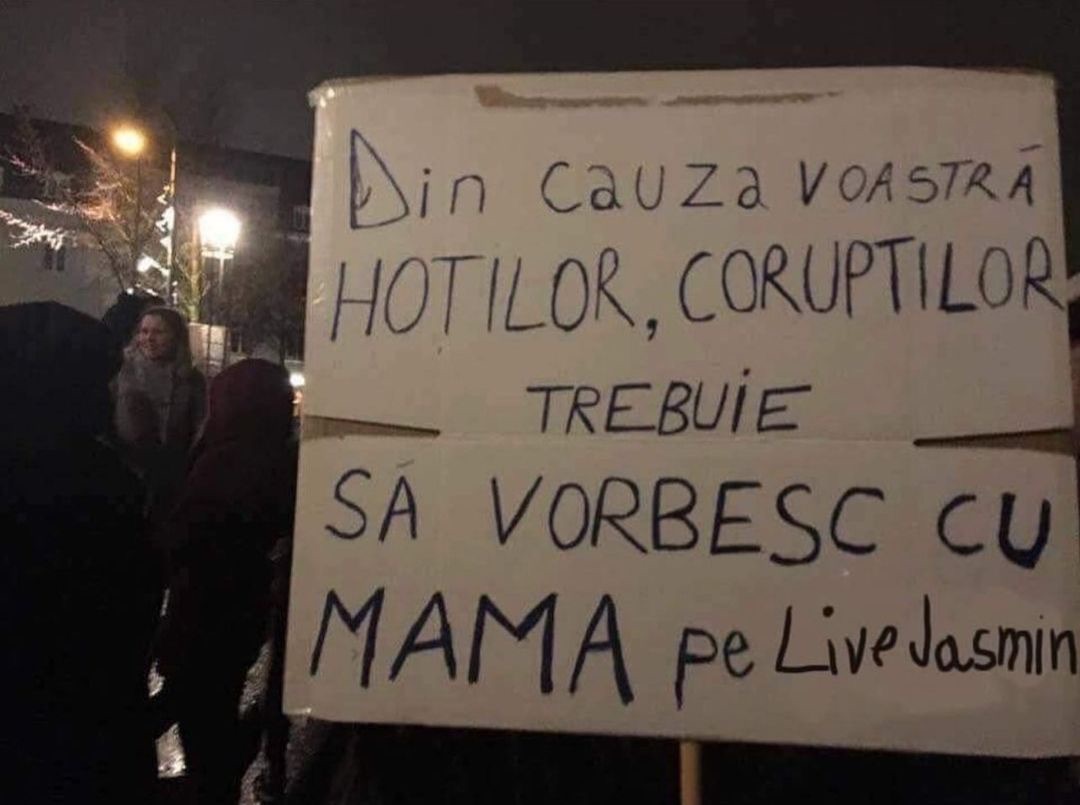 Din cauza VOASTRĂ
HOTILOR, CORUPTILOR
TREBUIE
SĂ VORBESC CU
MAMA pe LiveJasmin